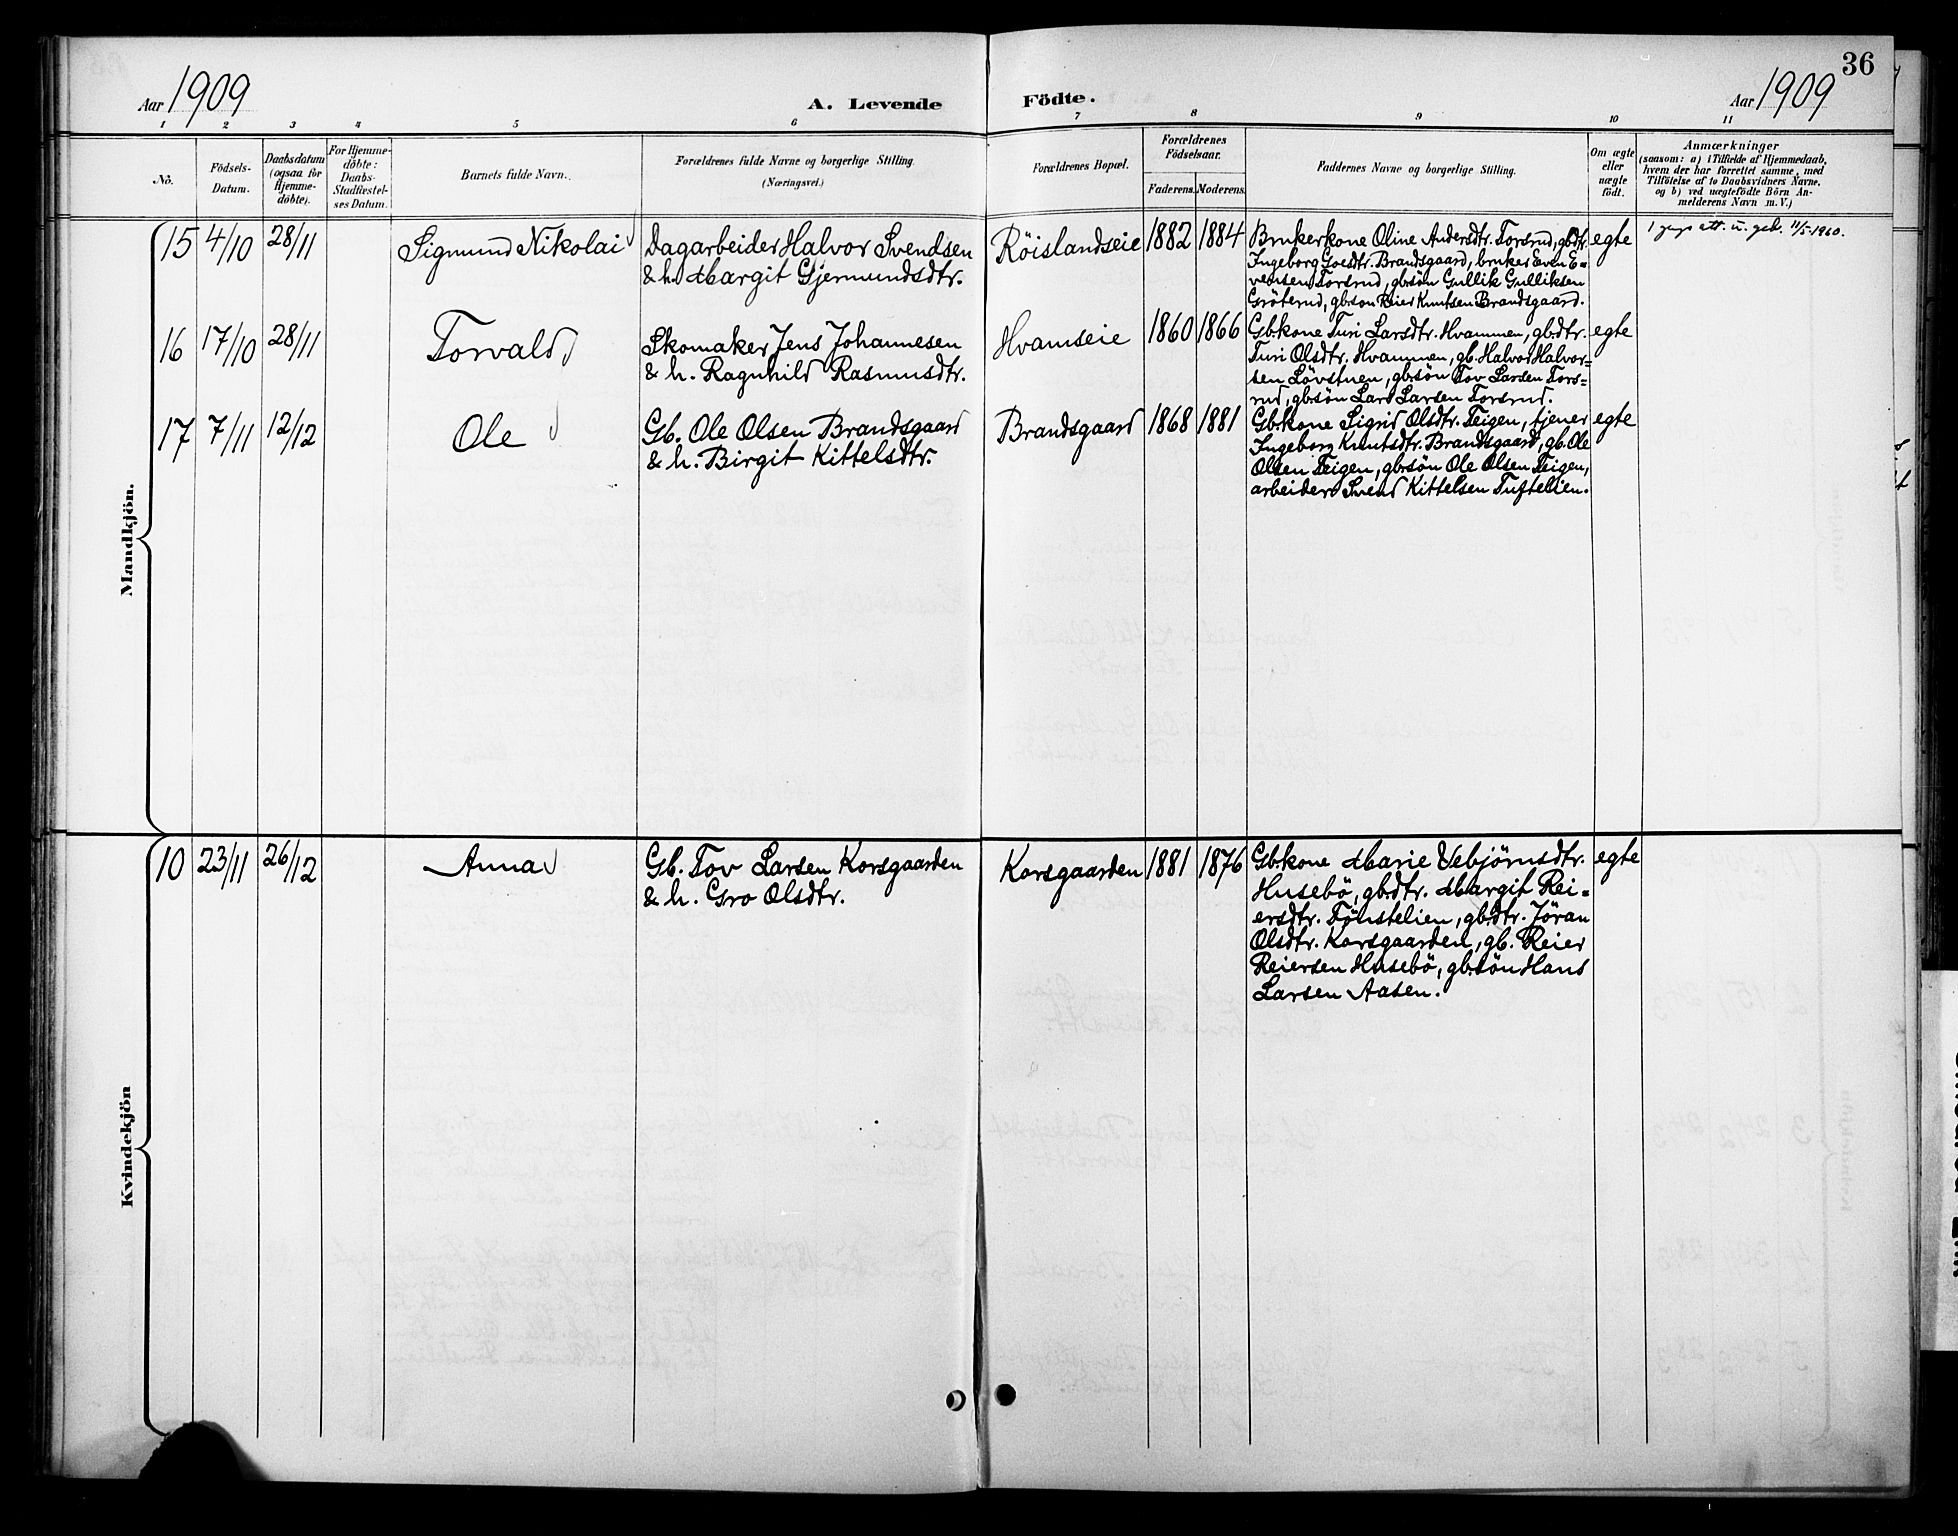 36
Aar 1909
A. Levende Födte.
Aar 1909
1 2 3 4 5 6 7 8 9 10 11
No.
Födsels-Datum.
Daabsdatum (ogsaa for Hjemme-döbte).
For Hjemme-döbte: Daabs-Stadfæstel-ses Datum.
Barnets fulde Navn.
Forældrenes fulde Navne og borgerlige Stilling.
(Næringsvei.)
Forældrenes Bopæl.
Forældrenes Födselsaar.
Faderens. Moderens.
Faddernes Navne og borgerlige Stilling.
Om ægte eller uægte födt.
Anmærkninger
(saasom: a) i Tilfælde af Hjemmedaab,
hvem der har forrettet samme, med
Tilföielse af to Daabsvidners Navne,
og b) ved uægtefödte Börn An-
melderens Navn m. V.)
Mandkjön.
15 4/10 28/11 Sigmund Nikolai
Dagarbeider Halvor Svendsen
& h. Margit Gjermundsdtr.
Röislandseie 1882 1884
Brukerkone Oline Andersdtr. Torsrud, gbdtr.
Ingeborg Goesdtr. Brandsgaard, bruker Even E-
vensen Torsrud, gbsön Gullik Gulliksen
Gröterud, gbsön Reier Knutsen Brandsgaard.
egte
1 gags att. u. geb. 11/5-1960.
16 17/10 28/11 Torvald
Skomaker Jens Johannesen
& h. Ragnhild Rasmusdtr.
Hvamseie 1860 1866
Gbkone Turi Larsdtr. Hvammen, gbdtr.
Turi Olsdtr. Hvammen, gb. Halvor Halvor-
sen Lövstuen, gbsön Tov Larsen Tors-
rud, gbsön Lars Larsen Torsrud.
egte
17 7/11 12/12 Ole
Gb. Ole Olsen Brandsgaard
& h. Birgit Kittelsdtr.
Brandsgaard 1868 1881
Gbkone Sigrid Olsdtr. Teigen, tjener
Ingeborg Knutsdtr. Brandsgaard, gb. Ole
Olsen Teigen, gbsön Ole Olsen Teigen,
arbeider Svend Kittelsen Tuftelien.
egte
Kvindekjön
10 23/11 26/12 Anna
Gb. Tov Larsen Korsgaarden
& h. Gro Olsdtr.
Korsgaarden 1881 1876
Gbkone Marie Vebjörnsdtr.
Husebö, gbdtr. Margit Rei-
ersdtr. Tönstelien, gbdtr. Jöran
Olsdtr. Korsgaarden, gb. Reier
Reiersen Husebö, gbsön Hans
Larsen Aasen.
egte